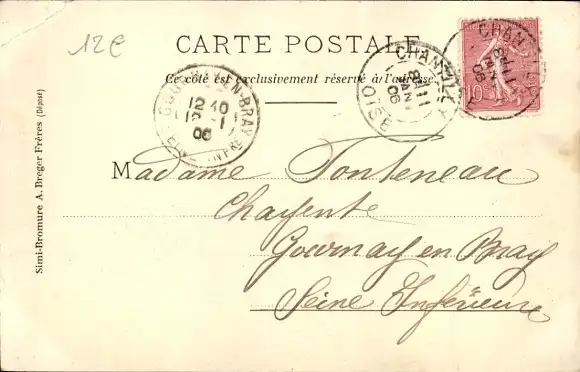 12€
CARTE POSTALE
Ce côté est exclusivement réservé à l'adresse
CHANTILLY
11
JANV
06
OISE
10c
EN-BRAY
12 40
12 -1
06
Madame Fonteneau
Gournay en Bray
Seine Inférieure
Simi-Bromure A. Breger Frères (Déposé)